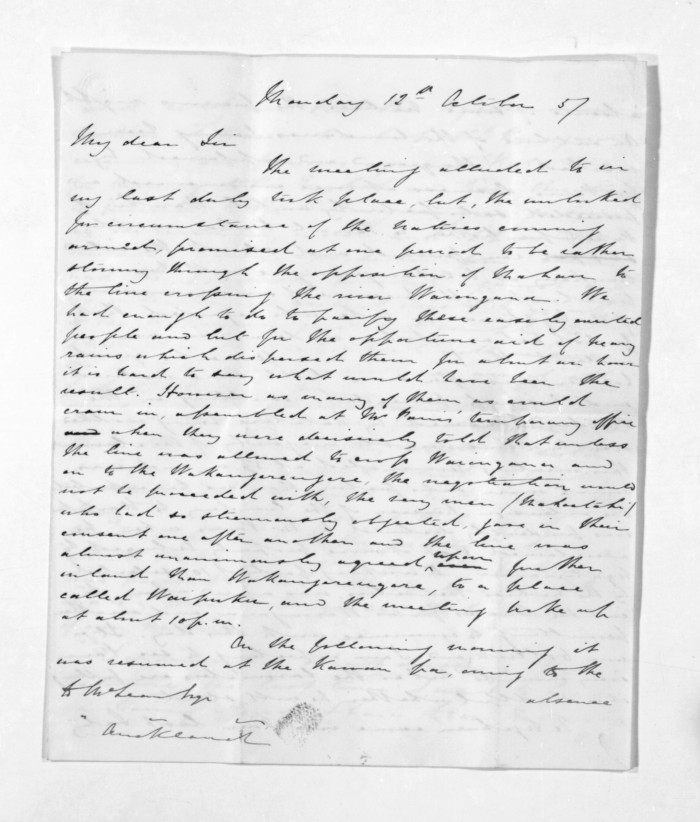 Monday 12th October 57
My dear Sir
The meeting alluded to in
my last duly took place, but, the unlooked
for circumstance of the natives coming
armed, promised at one period to be rather
stormy through the opposition of Mahau to
the line crossing the river Waiongana. We
had enough to do to pacify these easily excited
people and but for the opportune aid of heavy
rains which dispersed them for about an hour
it is hard to say what would have been the
result. However as many of them as could
cram in, assembled at Mr Parris' temporary office
and when they were decisively told that unless
the line was allowed to cross Waiongana and
on to the Wakangerengere, the negotiation would
not be proceeded with, the very men
who had so strenuously objected, gave in their
consent one after another and the line was
almost unanimously agreed upon further
inland than Wakangerengere, to a place
called Waipuku, and the meeting broke up
at about 10 p.m.
On the following morning it
was resumed at the Kawau pa, owing to the
absence
D McLean Esqr
" Auckland "